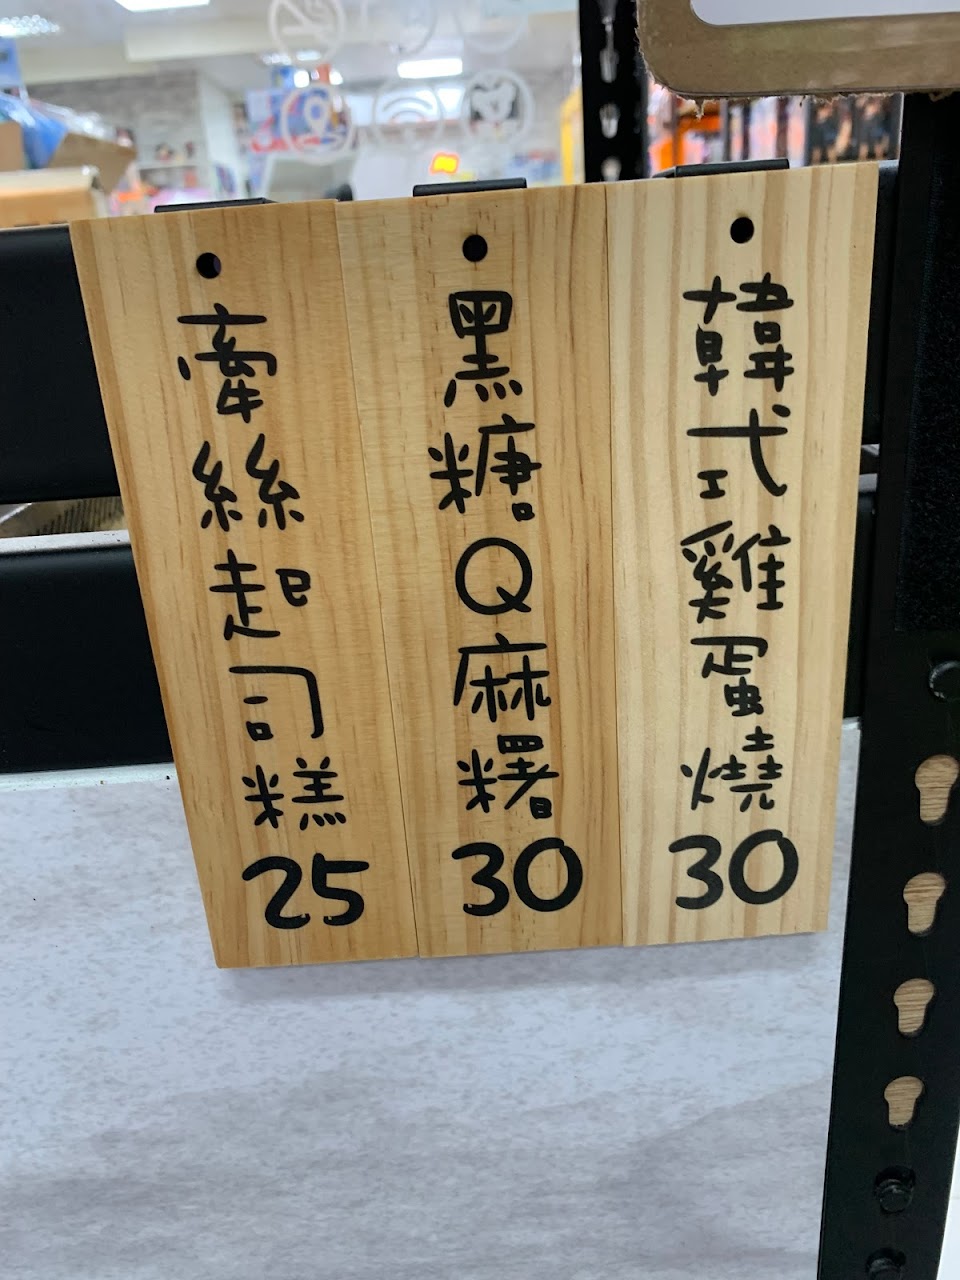 韓式雞蛋燒
30
黑糖Q麻糬
30
牽絲起司糕
25